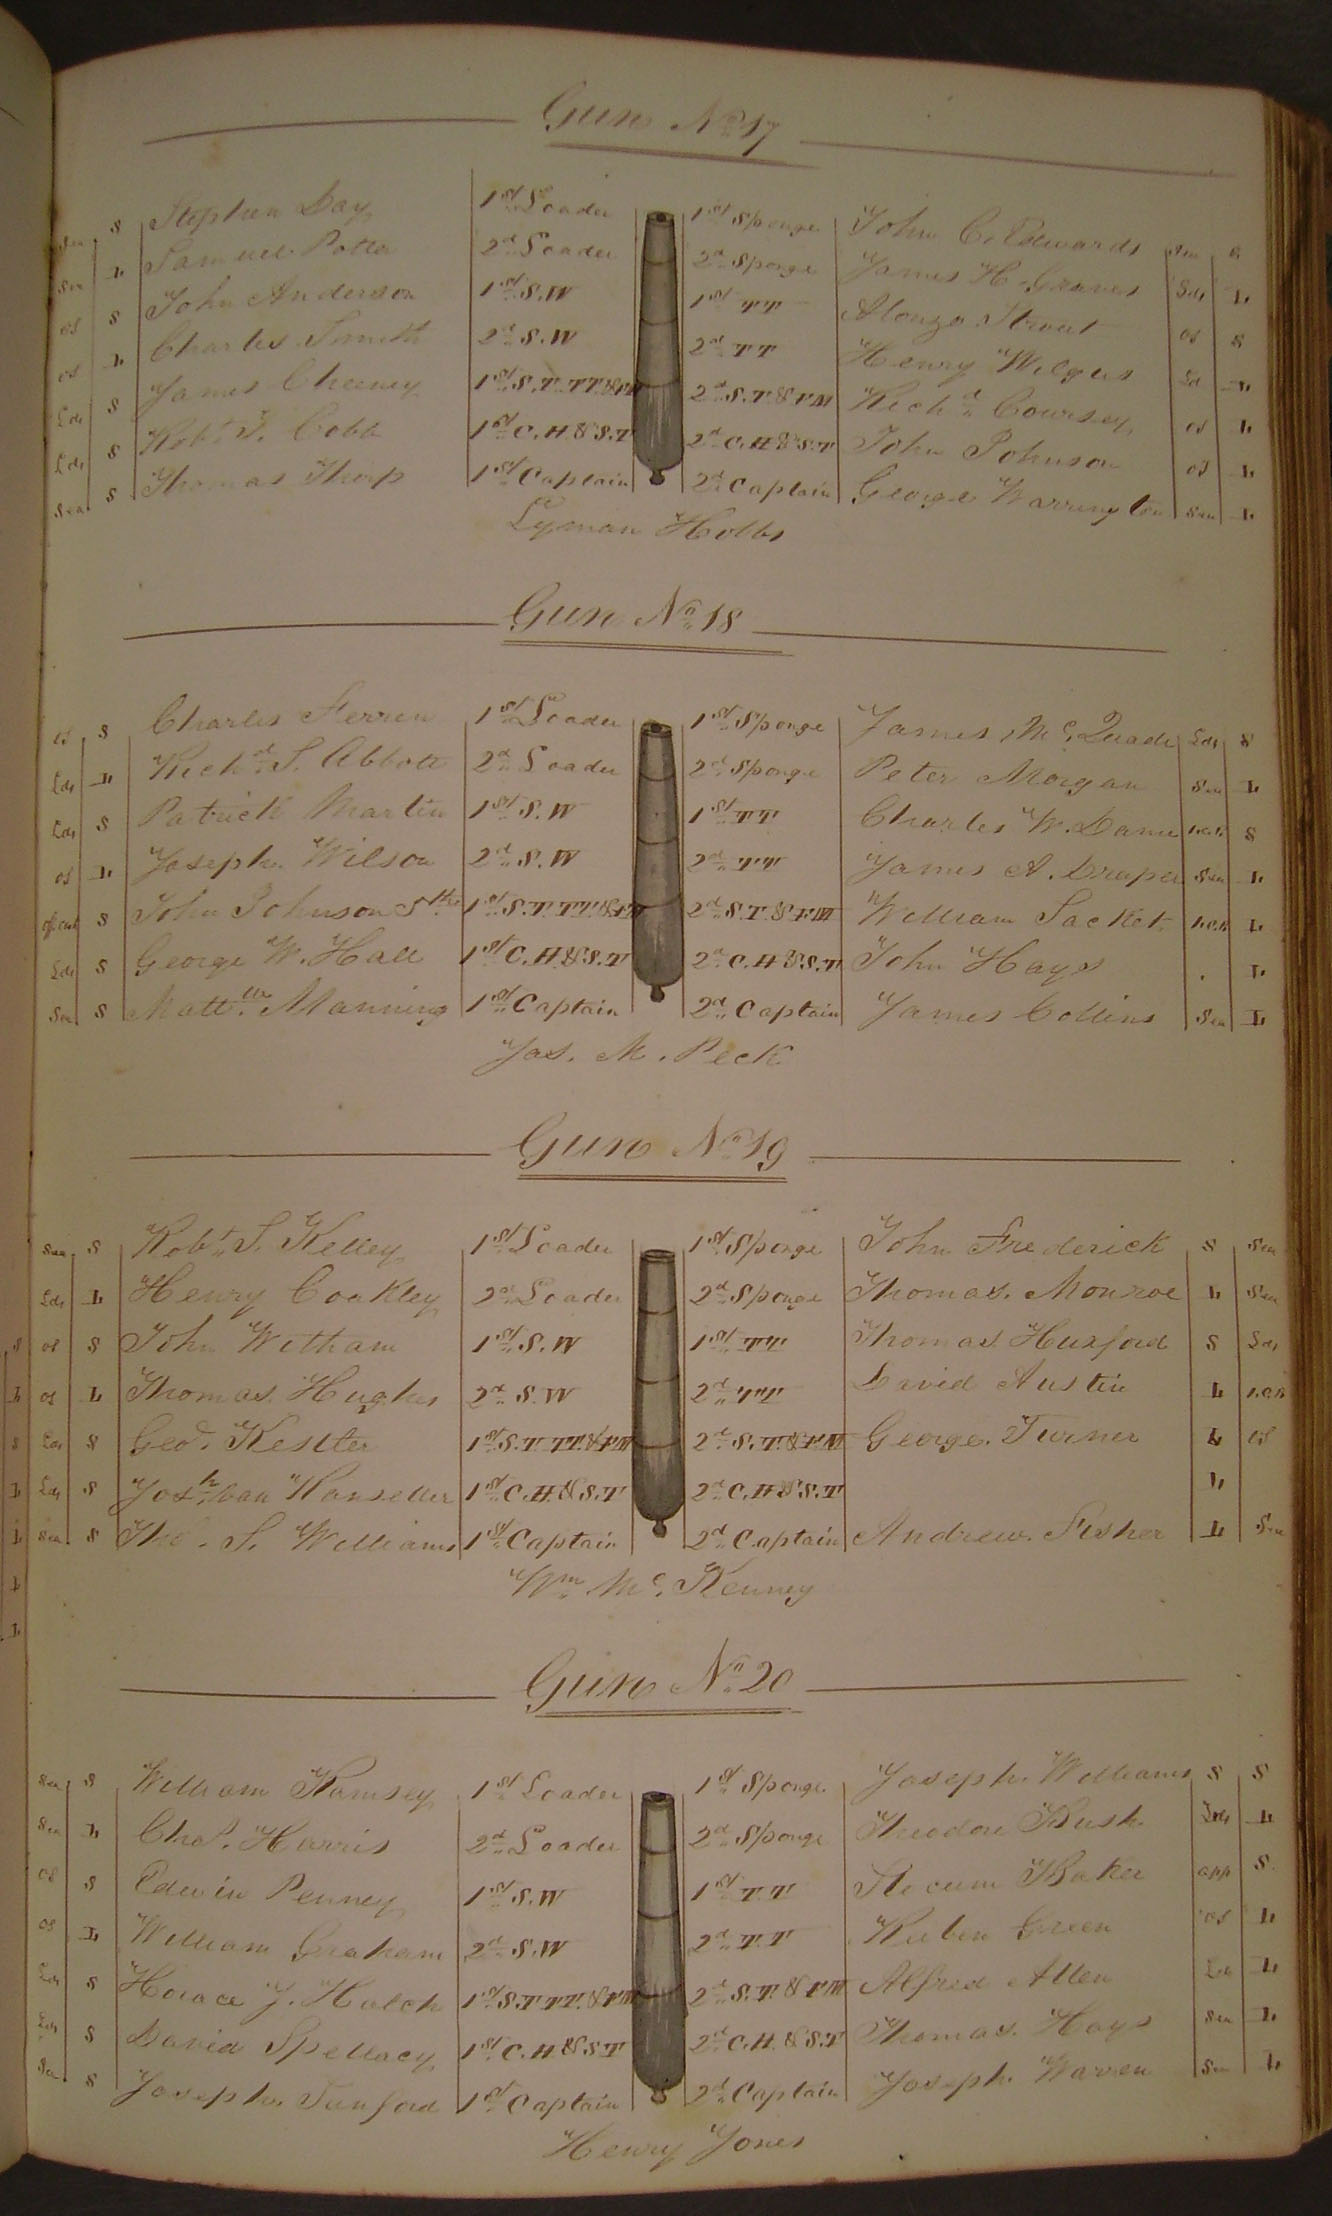 Gun No 17
Sea S Stephen Day 1st Loader 1st Sponge John C. Edwards Sea S
Sea L Samuel Potter 2d Loader 2d Sponge James H. Graves Lds L
OS S John Anderson 1st S.W 1st TT Alonzo Strout OS S
OS L Charles Smith 2d S.W 2d TT Henry Wilgus Ld L
Lds S James Cheeney 1st S.T. TT. & FM 2d S.T. & FM Richd Coursey OS L
Lds S Robt S. Cobb 1st C.H & S.T 2d C.H & S.T John Johnson OS L
Sea S Thomas Thorp 1st Captain 2d Captain George Warrington Sea L
Lyman Hobbs
Gun No 18
OS S Charles Ferren 1st Loader 1st Sponge James McQuade Lds S
Lds L Richd S. Abbott 2d Loader 2d Sponge Peter Morgan Sea L
Lds S Patrick Martin 1st S.W 1st TT Charles W. S
OS L Joseph Wilson 2d S.W 2d TT James A. Draper Sea L
S John Johnson 5th 1st S.T TT. & FM 2d S.T & FM William Sacket L
Lds S George W. Hall 1st C.H. & S.T 2d C.H & S.T John Hays L
Sea S Mattw Manning 1st Captain 2d Captain James Collins Sea L
Jas. M. Peck
Gun No 19
Sea S Robt S. Kelley 1st Loader 1st Sponge John Frederick S Sea
Lds L Henry Coakley 2d Loader 2d Sponge Thomas Monroe L Sea
S OS S John Witham 1st S.W 1st TT Thomas Huxford S Lds
L OS L Thomas Hughes 2d S.W 2d TT David Austin L
S Lds S Geo. 1st S.T TT. & FM 2d S.T. & FM George Turner L OS
L Lds S Josh Van 1st C.H. & S.T 2d C.H & S.T
L Sea S Tho. S. Williams 1st Captain 2d Captain Andrew Fisher L Sea
L
L
Wm Mc. Kenney
Gun No 20
Sea S William Ramsey 1st Loader 1st Sponge Joseph Williams S S
Sea L Chs. Harris 2d Loader 2d Sponge Theodore Bush Lds L
OS S Edwin Penney 1st S.W 1st T.T Slocum Baker app S
OS L William Graham 2d S.W 2d T.T Reuben Green OS L
Lds S Horace J. Hatch 1st S.T TT. & FM 2d S.T. & FM Alfred Allen Lds L
Lds S David Spellacy 1st C.H. & S.T 2d C.H. & S.T Thomas Hays Sea L
Sea S Joseph Sanford 1st Captain 2d Captain Joseph Warren Sea L
Henry Jones